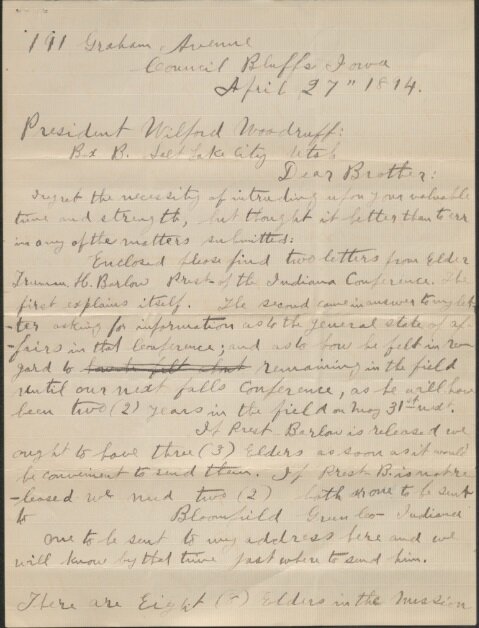 191 Graham Avenue
Council Bluffs Iowa
April 27" 1894.
President Wilford Woodruff:
Bx B. Salt Lake City Utah
Dear Brother:
I regret the necessity of intruding upon your valuable
time and strength, but thought it better than to err
in any of the matters submitted:
Enclosed please find two letters from Elder
Truman H. Barlow Prest of the Indiana Conference. The
first explains itself. The second came in answer to my let-
-ter asking for information as to the general state of af-
-fairs in that Conference; and as to how he felt in re-
gard to how he felt about remaining in the field
until our next falls Conference, as he will have
been two (2) years in the field on May 31st next.
If Prest. Barlow is released we
ought to have three (3) Elders as soon as it would
be convenient to send them. If Prest B. is not re-
-leased we need two (2) both or one to be sent
to Bloomfield Green Co- Indiana
one to be sent to my address here and we
will know by that time just where to send him.
There are Eight (8) Elders in the Mission